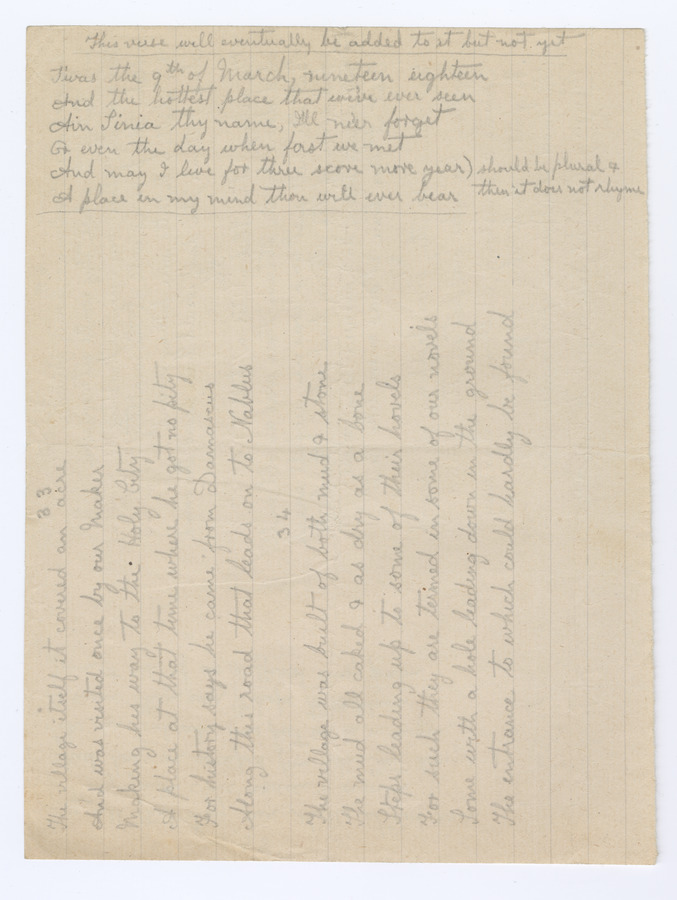 This verse will eventually be added to it but not yet
Twas the 9th of March, nineteen eighteen
And the hottest place that we've ever seen
Ain Sinia thy name, I'll ne'er forget
Or even the day when first we met
And may I live for three score more year) should be plural &
A place in my mind thou wilt ever bear then it does not rhyme
33
The village itself it covered an acre
And was visited once by our Maker
Making his way to the Holy City
A place at that time where he got no pity
For history says he came from Damascus
Along this road that leads on to Nablus
34
The village was built of both mud & stone
The mud all caked & as dry as a bone
Steps leading up to some of their hovels
For such they are termed in some of our novels
Some with a hole leading down in the ground
The entrance to which could hardly be found